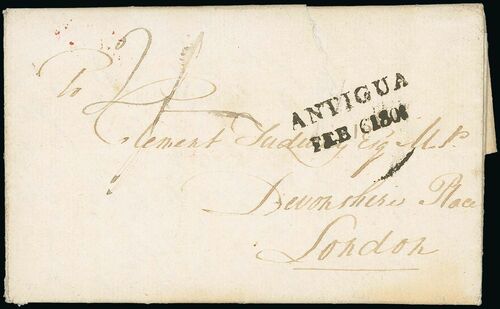 To
ANTIGUA
FEB 6 180
Clement Tudway Esq M.P.
Devonshire Place
London